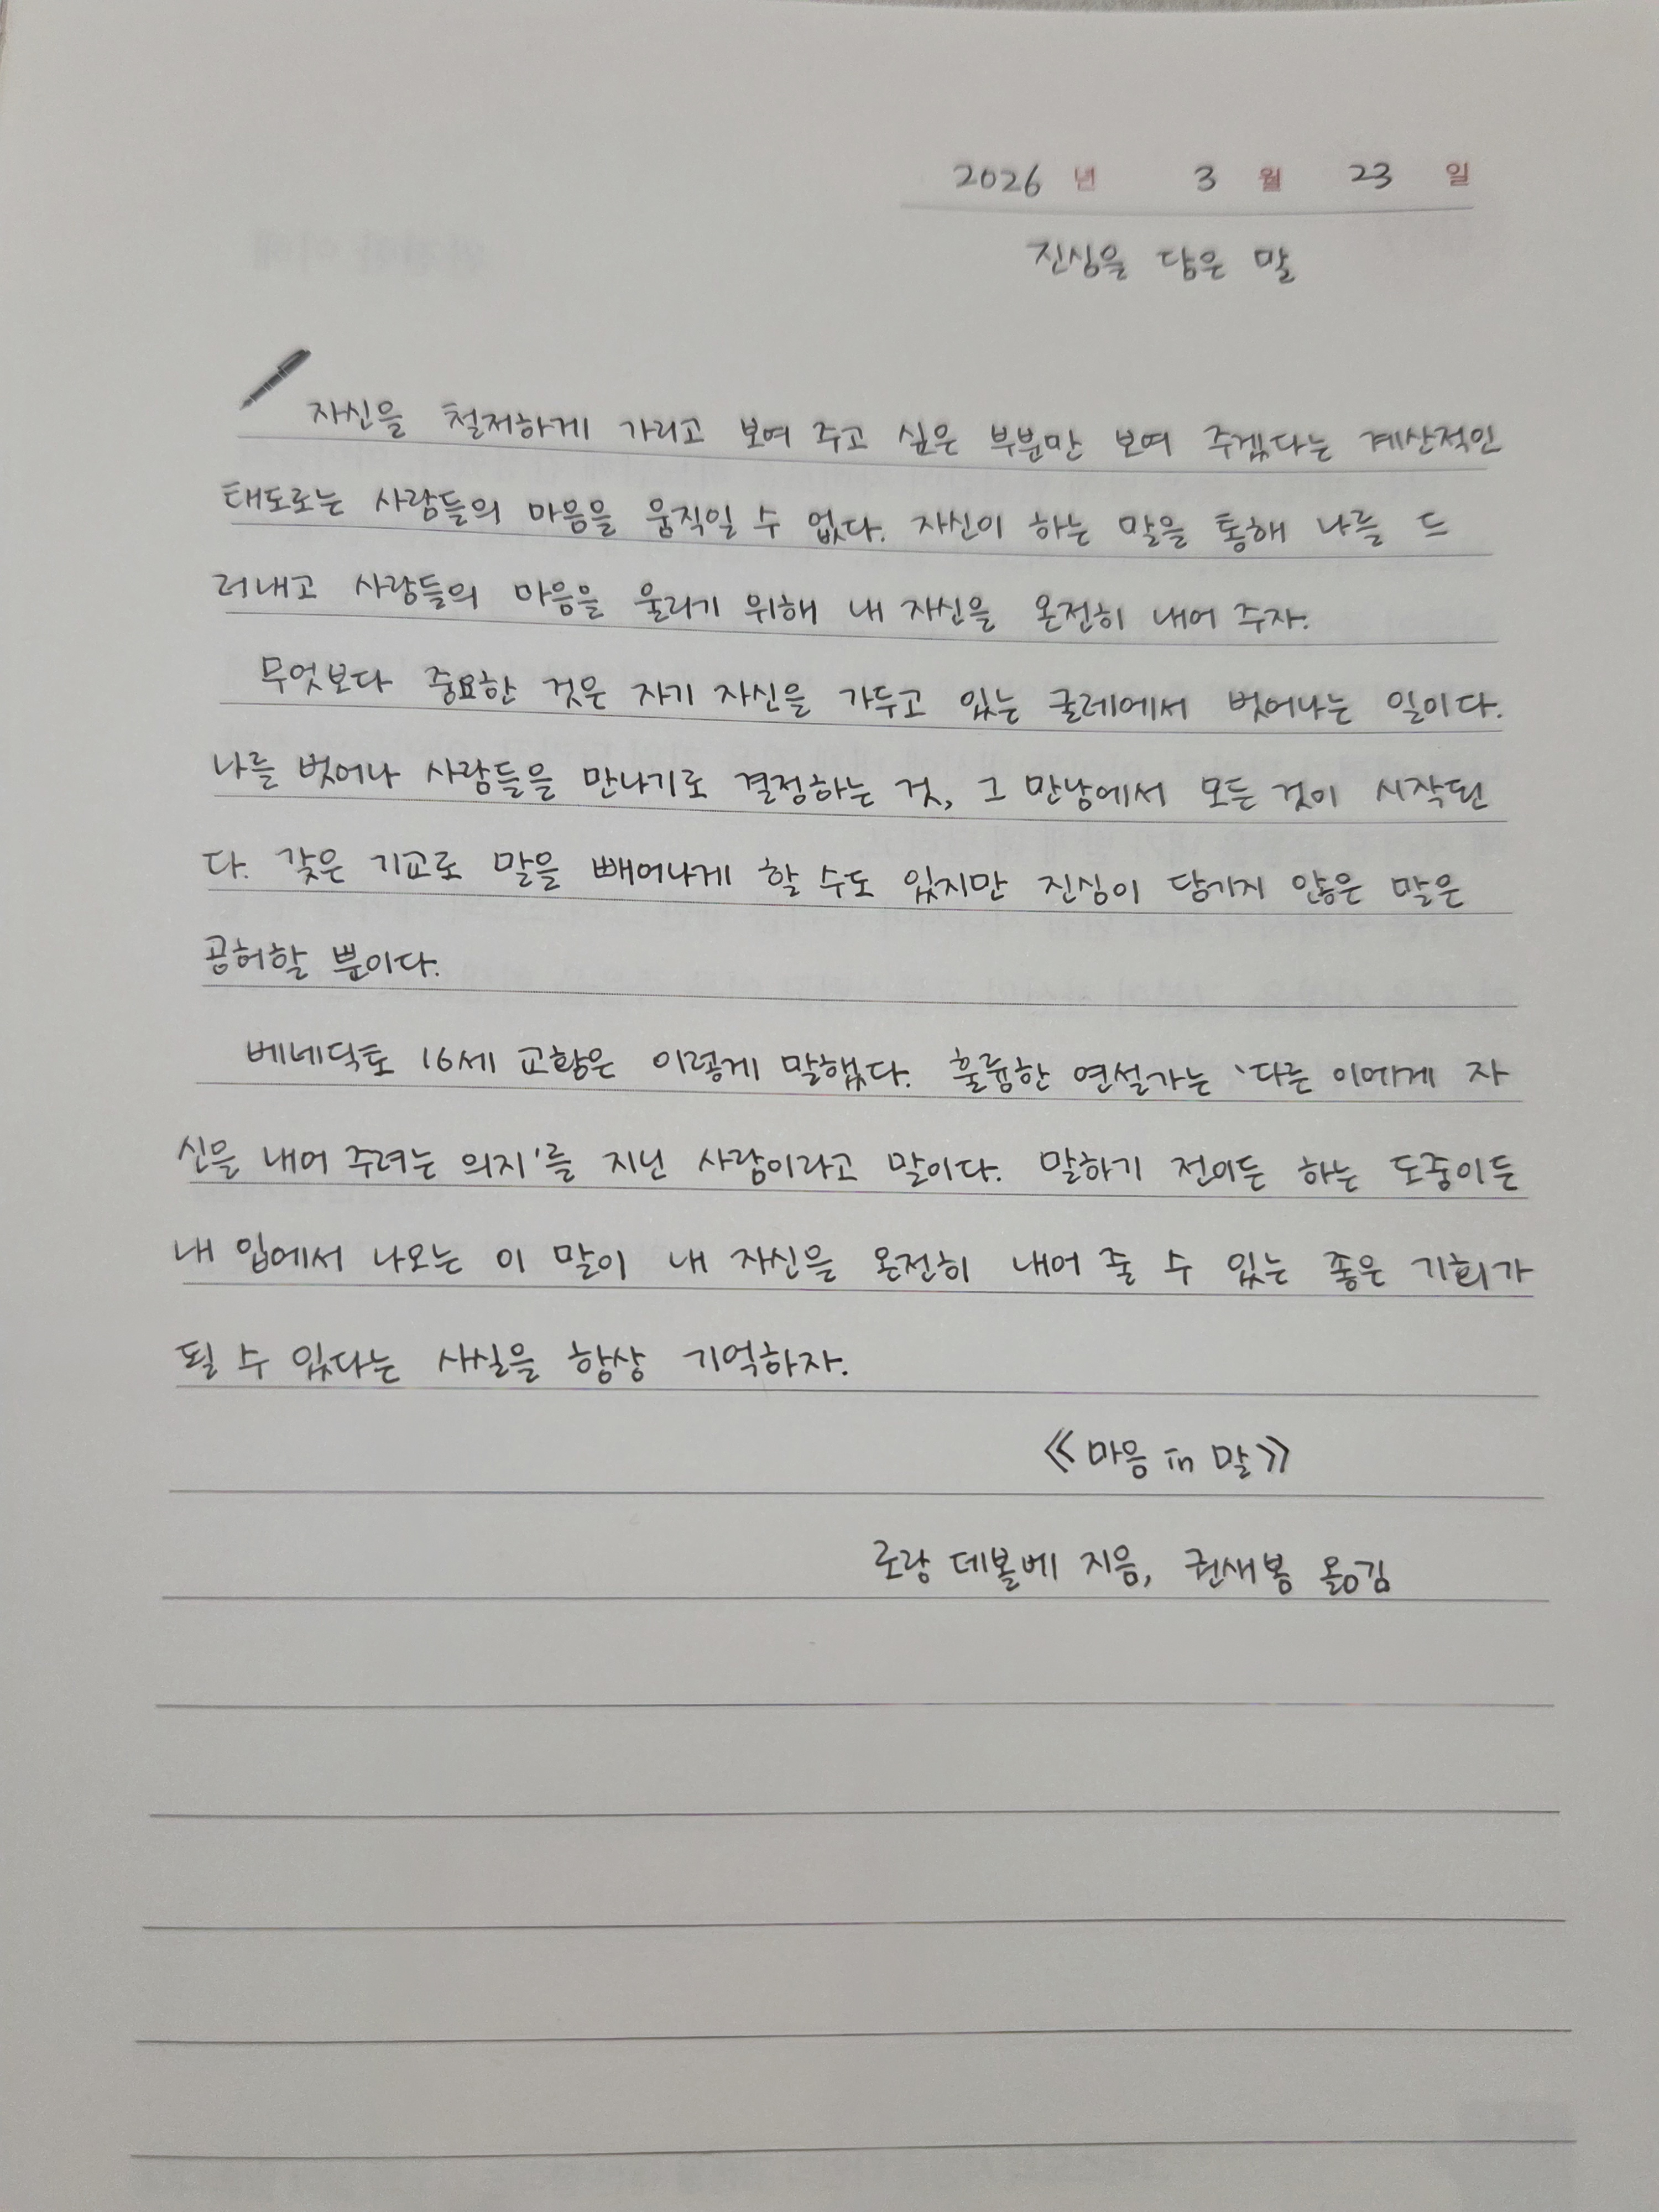 2026 년 3 월 23 일
진심을 담은 말
자신을 철저하게 가리고 보여 주고 싶은 부분만 보여 주겠다는 계산적인
태도로는 사람들의 마음을 움직일 수 없다. 자신이 하는 말을 통해 나를 드
러내고 사람들의 마음을 울리기 위해 내 자신을 온전히 내어 주자.
무엇보다 중요한 것은 자기 자신을 가두고 있는 굴레에서 벗어나는 일이다.
나를 벗어나 사람들을 만나기로 결정하는 것, 그 만남에서 모든 것이 시작된
다. 갖은 기교로 말을 빼어나게 할 수도 있지만 진심이 담기지 않은 말은
공허할 뿐이다.
베네딕토 16세 교황은 이렇게 말했다. 훌륭한 연설가는 '다른 이에게 자
신을 내어 주려는 의지'를 지닌 사람이라고 말이다. 말하기 전이든 하는 도중이든
내 입에서 나오는 이 말이 내 자신을 온전히 내어 줄 수 있는 좋은 기회가
될 수 있다는 사실을 항상 기억하자.
《마음 in 말》
로랑 데볼베 지음, 권새봄 옮김